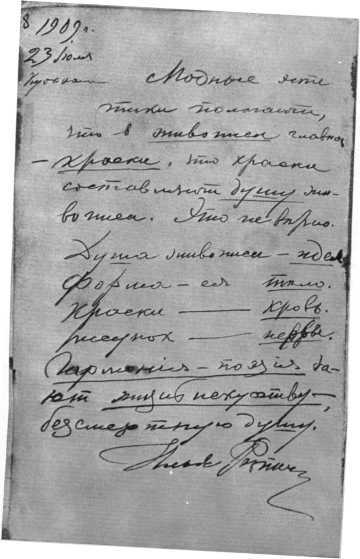 1909 г.
23 Июля
Куоккала Модные эсте
тики полагают,
что в живописи главное
– краски, что краски
составляют душу жи-
вописи. Это не верно.
Душа живописи – идея
Форма – ея тело.
Краски —— кровь.
рисунок —— нервы.
Гармония – поэзия да-
ют жизнь искусству –,
безсмертную душу.
Илья Репин